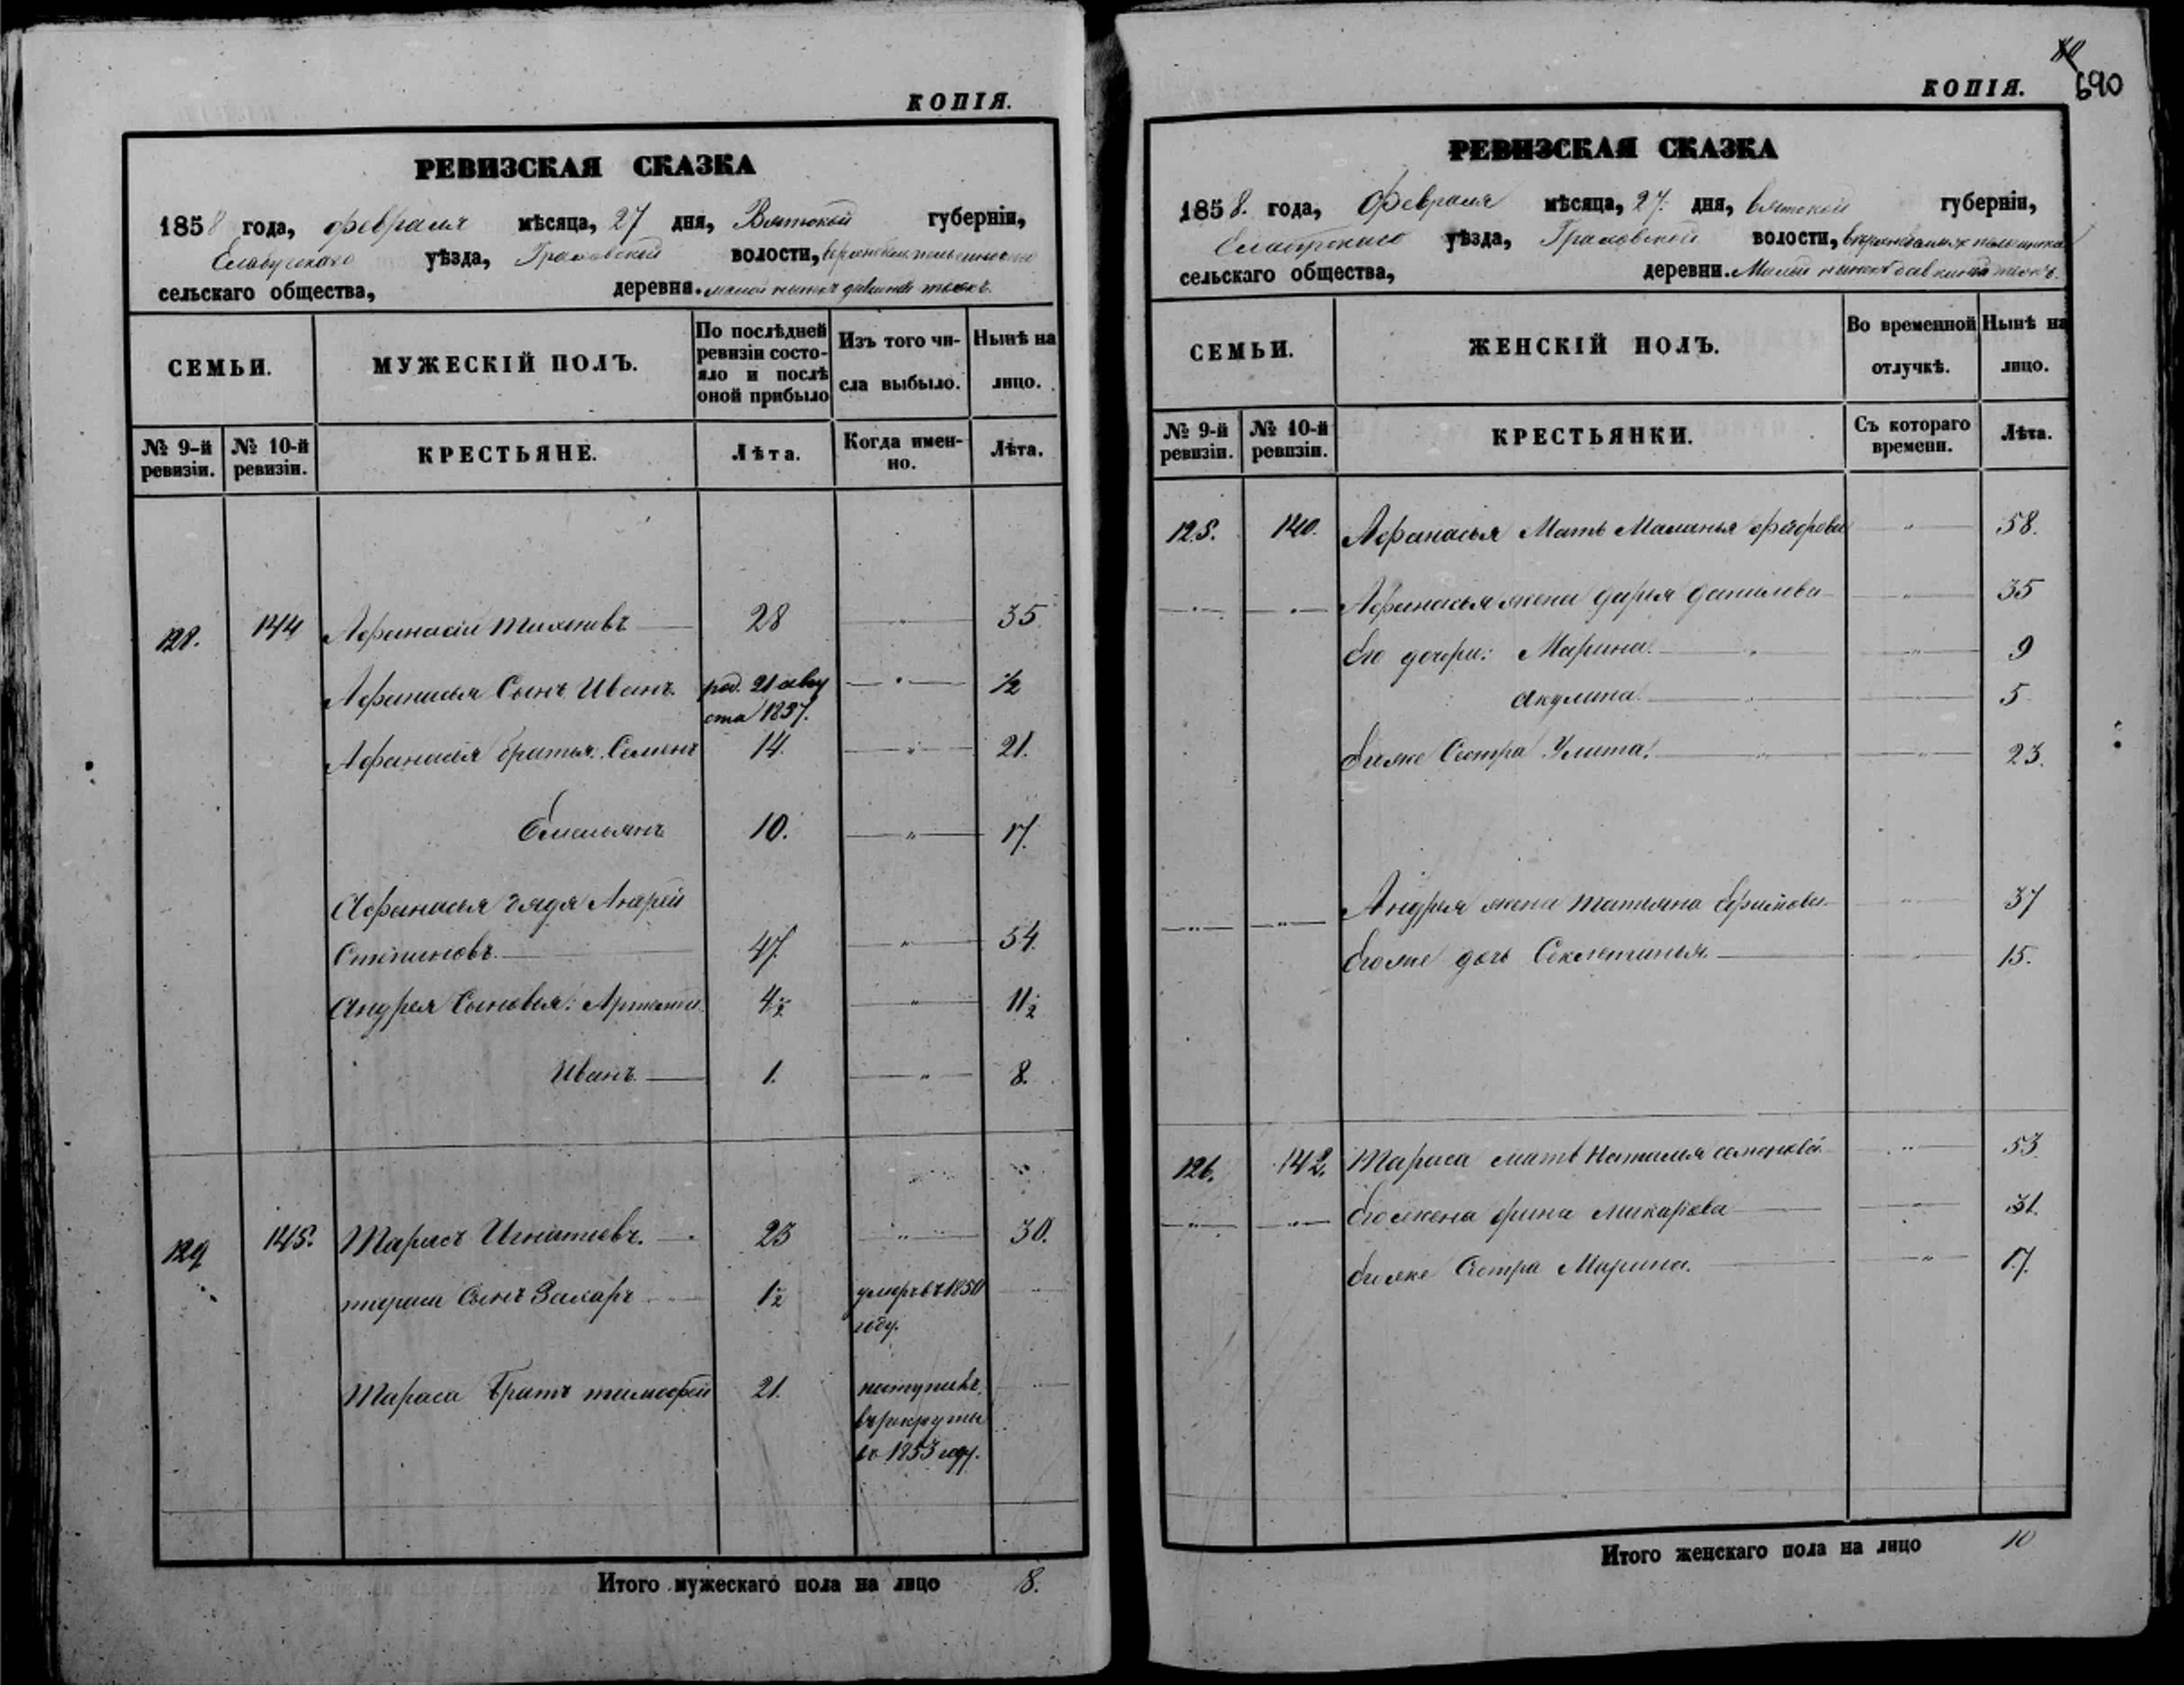 КОПІЯ.
РЕВИЗСКАЯ СКАЗКА
1858 года, февраля мѣсяца, 27 дня, Вятской губерніи,
Елабужскаго уѣзда, Граховской волости,
сельскаго общества, деревни. малой
СЕМЬИ.
МУЖЕСКІЙ ПОЛЪ.
По послѣдней
ревизіи состо-
яло и послѣ
оной прибыло
Изъ того чи-
сла выбыло.
Нынѣ на
лицо.
№ 9-й
ревизіи.
№ 10-й
ревизіи.
КРЕСТЬЯНЕ.
Лѣта.
Когда имен-
но.
Лѣта.
128. 144 Афанасій Тихоновъ 28 " 35.
Афанасья Сынъ Иванъ род. 21 авгу " ½
ста 1857.
Афанасья братья Семенъ 14. " 21.
Емельянъ 10. " 17.
Афанасья дядя Андрей
Степановъ 47. " 54.
Андрея Сыновья: Артемій 4½ " 11½
Иванъ 1. " 8.
129 145. Тарасъ Игнатьевъ. 23 " 30.
тараса Сынъ Захаръ 1½ умеръ въ 1850 "
году.
Тараса Братъ тимофей 21. поступилъ "
въ рекруты
въ 1853 году.
Итого мужескаго пола на лицо 8.
690
КОПІЯ.
РЕВИЗСКАЯ СКАЗКА
1858. года, Февраля мѣсяца, 27. дня, вятской губерніи,
уѣзда, Граховской волости,
сельскаго общества, деревни. Малой
СЕМЬИ.
ЖЕНСКІЙ ПОЛЪ.
Во временной
отлучкѣ.
Нынѣ на
лицо.
№ 9-й
ревизіи.
№ 10-й
ревизіи.
КРЕСТЬЯНКИ.
Съ котораго
времени.
Лѣта.
125. 140. Афанасья Мать Маланья " 58.
Афанасья жена дарья данилова " 35
Его дочери: Марина " 9
акулина " 5
Егоже Сестра Улита " 23.
Андрея жена татьяна Ефимова " 37
Егоже дочь Секлетинья " 15.
126. 142. Тараса мать Наталья семенова " 53
Его жена орина макарова " 31.
Егоже Сестра Марина. " 17.
Итого женскаго пола на лицо 10